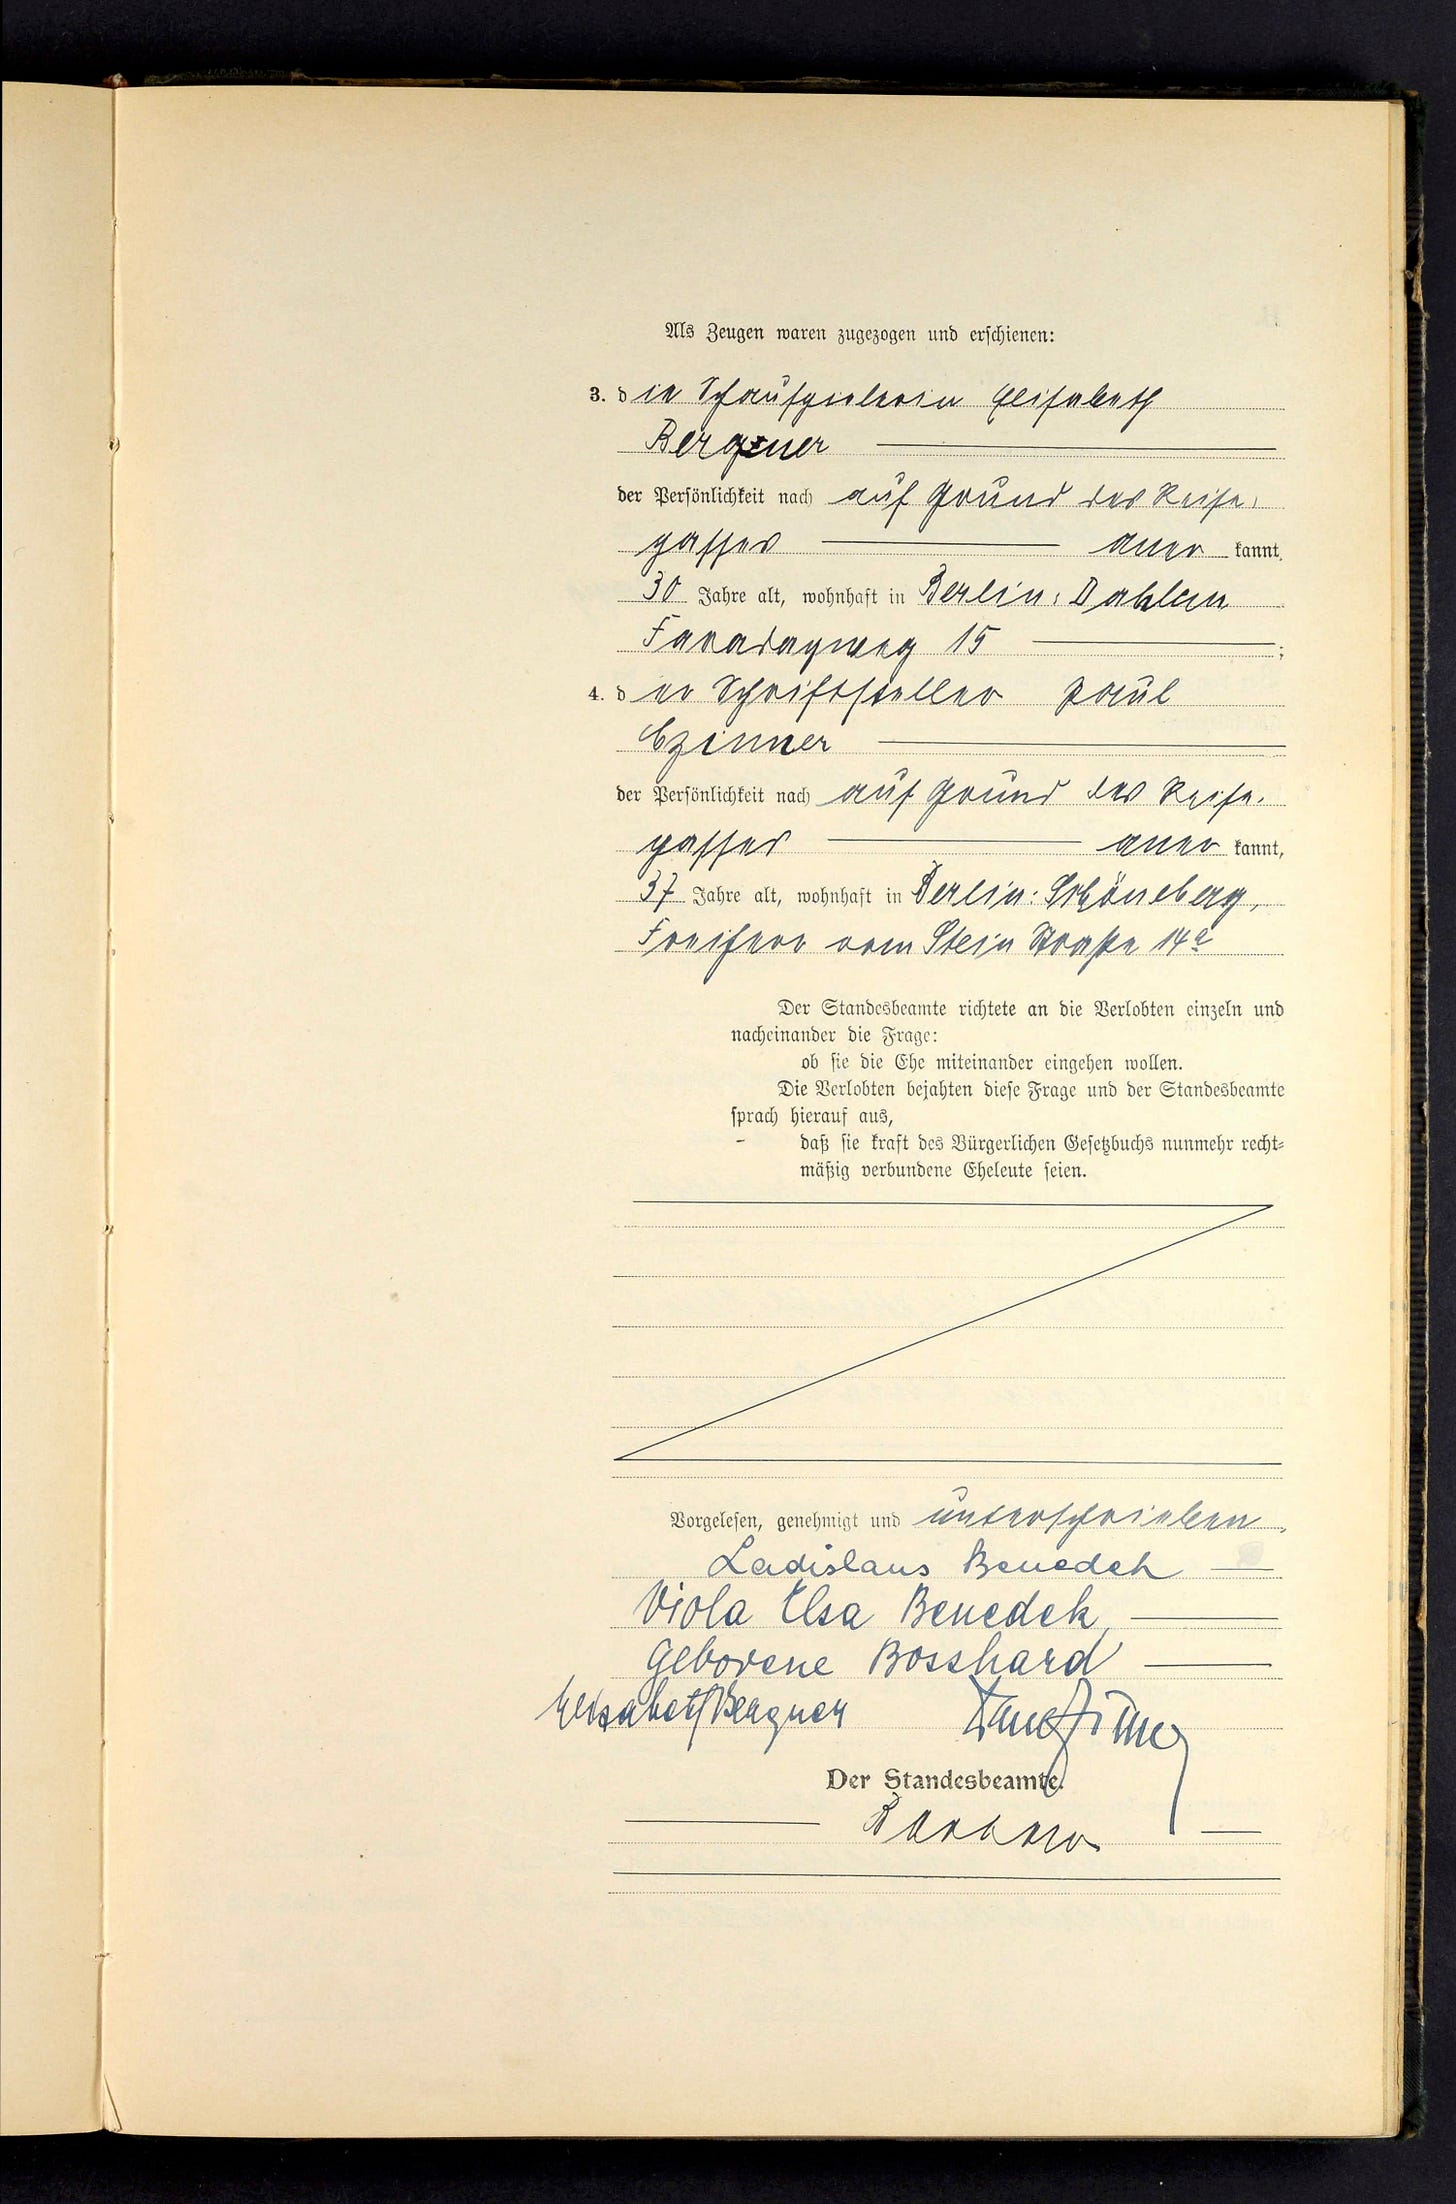 Als Zeugen waren zugezogen und erschienen:
3. die Schauspielerin Elisabeth
Bergner
der Persönlichkeit nach auf Grund des Reise-
passes anerkannt,
30 Jahre alt, wohnhaft in Berlin-Dahlem
Faradayweg 15 ;
4. der Schriftsteller Paul
Czinner
der Persönlichkeit nach auf Grund des Reise-
passes anerkannt,
37 Jahre alt, wohnhaft in Berlin-Schöneberg,
Freiherr vom Stein Straße 14a
Der Standesbeamte richtete an die Verlobten einzeln und
nacheinander die Frage:
ob sie die Ehe miteinander eingehen wollen.
Die Verlobten bejahten diese Frage und der Standesbeamte
sprach hierauf aus,
daß sie kraft des Bürgerlichen Gesetzbuchs nunmehr recht-
mäßig verbundene Eheleute seien.
Vorgelesen, genehmigt und unterschrieben.
Ladislaus Benedek
Viola Elsa Benedek,
Geborene Bosshard
Elisabeth Bergner Paul Czinner
Der Standesbeamte.